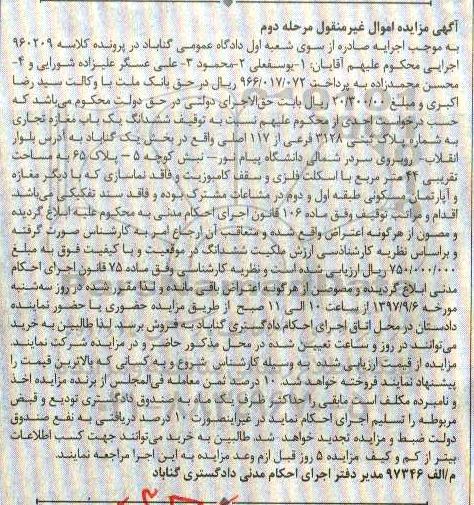 آگهی مزایده اموال غیرمنقول مرحله دوم
به موجب اجرایه صادره از سوی شعبه اول دادگاه عمومی گناباد در پرونده کلاسه ۹۶۰۲۰۹
اجرایی محکوم علیهم آقایان: ۱-یوسفعلی ۲-محمود ۳-علی عسگر علیزاده شورایی و ۴-
محسن محمدزاده به پرداخت ۹۶۶/۰۱۷/۰۷۲ ریال در حق بانک ملت با وکالت سید رضا
اکبری و مبلغ ۲۰/۳۰۰/۰۰۰ ریال بابت حق‌الاجرای دولتی در حق دولت محکوم می‌باشد که
حسب درخواست احدی از محکوم علیهم نسبت به توقیف ششدانگ یک باب مغازه تجاری
به شماره پلاک ثبتی ۳۱۲۸ فرعی از ۱۱۷ اصلی واقع در بخش یک گناباد به آدرس بلوار
انقلاب- روبروی سردر شمالی دانشگاه پیام نور- نبش کوچه ۵ - پلاک ۶۵ به مساحت
تقریبی ۴۴ متر مربع با اسکلت فلزی و سقف کامپوزیت و فاقد نماسازی که با دیگر مغازه
و آپارتمان مسکونی طبقه اول و دوم در مشاعات مشترک بوده و فاقد سند تفکیکی می‌باشد.
اقدام و مراتب توقیف وفق ماده ۱۰۶ قانون اجرای احکام مدنی به محکوم علیه ابلاغ گردیده
و مصون از هرگونه اعتراض واقع شده و متعاقب آن ارجاع امر به کارشناس صورت گرفته
و براساس نظریه کارشناسی ارزش ملکیت ششدانگ در موقعیت و با کیفیت فوق به مبلغ
۷۵۰/۰۰۰/۰۰۰ ریال ارزیابی شده است و نظریه کارشناسی وفق ماده ۷۵ قانون اجرای احکام
مدنی ابلاغ گردیده و مصون از هرگونه اعتراض باقی مانده و لذا مقرر شده در روز سه‌شنبه
مورخه ۱۳۹۷/۹/۶ از ساعت ۱۰ الی ۱۱ صبح از طریق مزایده حضوری با حضور نماینده
دادستان در محل اتاق اجرای احکام دادگستری گناباد به فروش برسد. لذا طالبین به خرید
می‌توانند در روز و ساعت تعیین شده در محل مذکور حاضر و در مزایده شرکت نمایند.
مزایده از قیمت ارزیابی شده به وسیله کارشناس شروع و به کسانی که بالاترین قیمت را
پیشنهاد نمایند فروخته خواهد شد. ۱۰ درصد ثمن معامله فی‌المجلس از برنده مزایده اخذ
و نامبرده مکلف است مابقی را حداکثر ظرف یک ماه به صندوق دادگستری تودیع و قبض
مربوطه را تسلیم اجرای احکام نماید در غیراینصورت ۱۰ درصد دریافتی به نفع صندوق
دولت ضبط و مزایده تجدید خواهد شد. طالبین به خرید می‌توانند جهت کسب اطلاعات
بیتر از کم و کیف مزایده ۵ روز قبل ازم وعد مزایده به این اجرا مراجعه نمایند.
م/الف ۹۷۳۴۶ مدیر دفتر اجرای احکام مدنی دادگستری گناباد